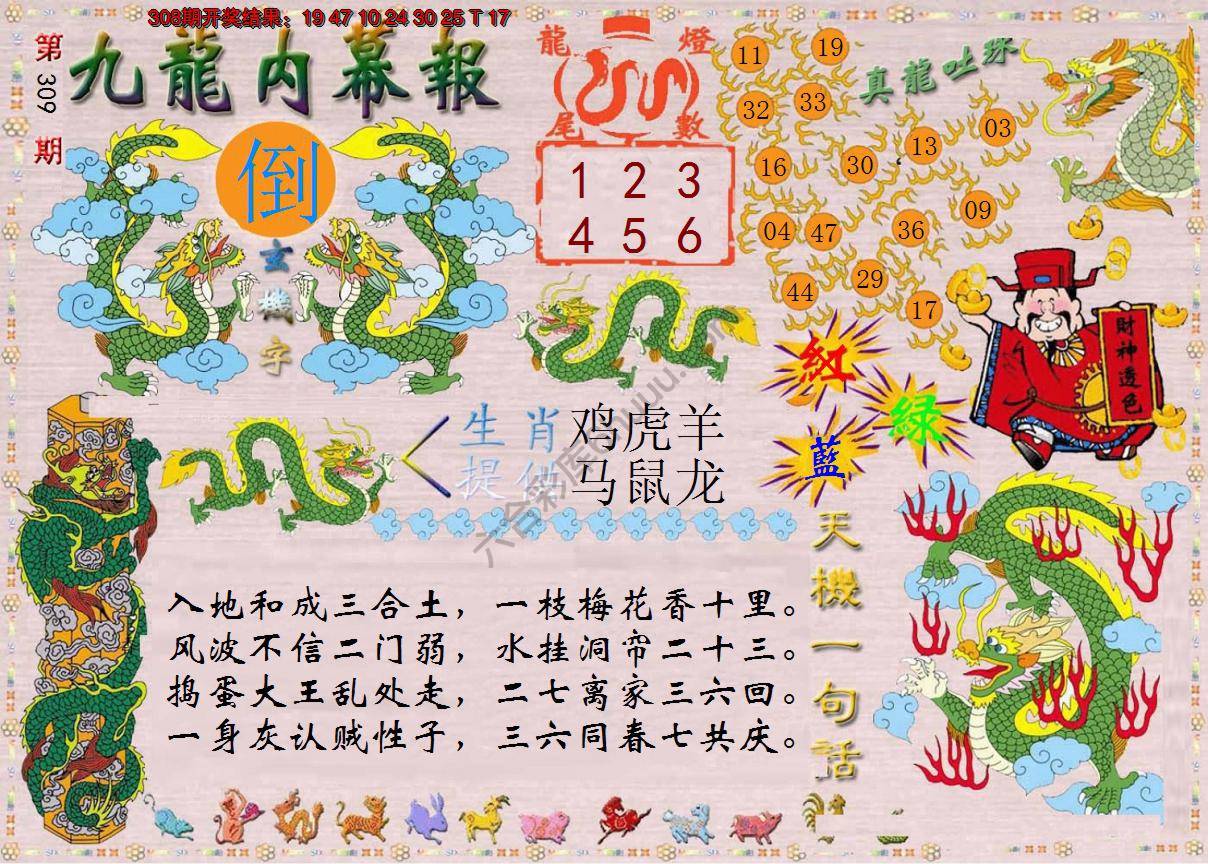 308期开奖结果：19 47 10 24 30 25 T 17
第309期
九龍内幕報
倒
玄機字
龍燈
尾數
1 2 3
4 5 6
真龍吐珠
11
19
32
33
13
03
16
30
09
04
47
36
29
44
17
財神透色
紅
綠
藍
生肖 鸡虎羊
提供 马鼠龙
天機一句話
入地和成三合土，一枝梅花香十里。
风波不信二门弱，水挂洞帘二十三。
捣蛋大王乱处走，二七离家三六回。
一身灰认贼性子，三六同春七共庆。